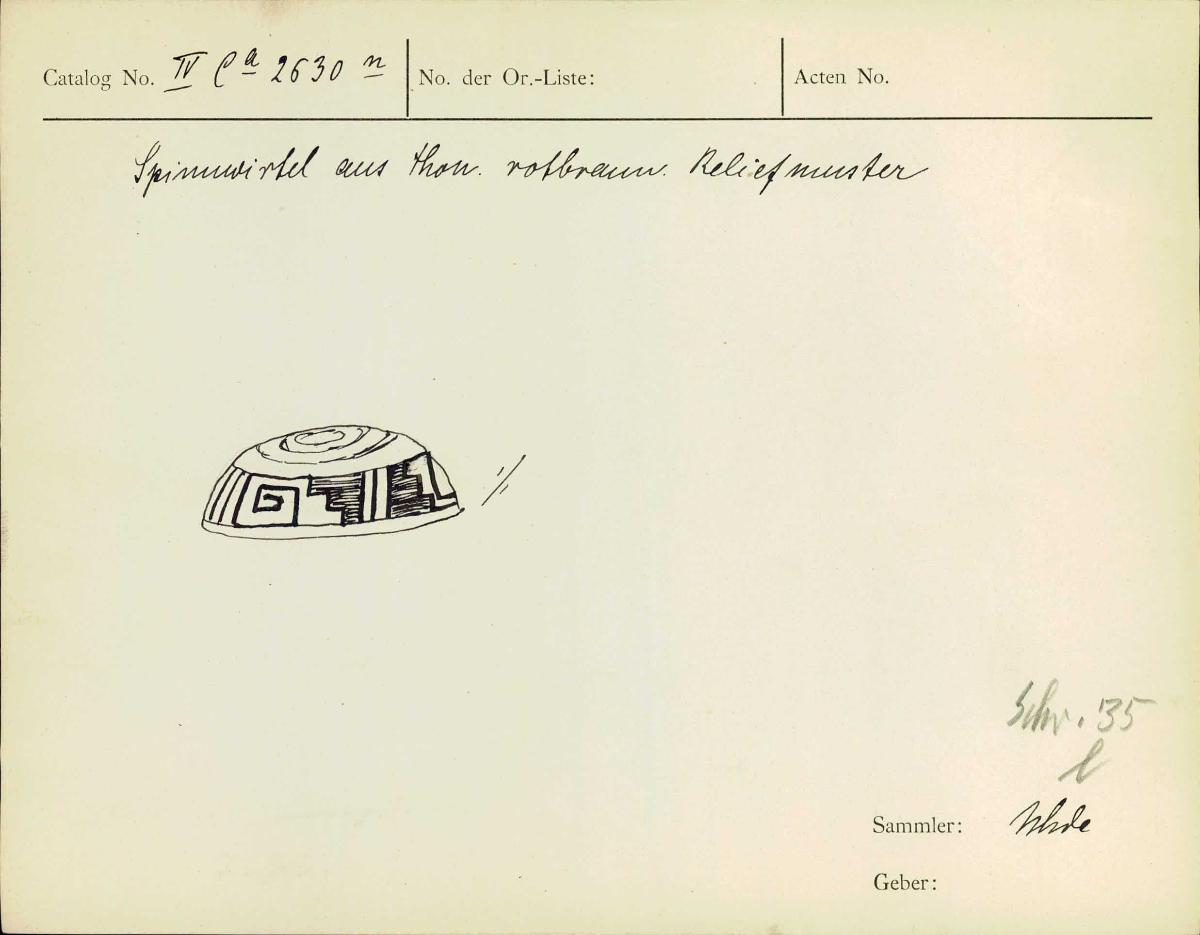 Catalog No. IV Ca 2630 n
No. der Or.-Liste:
Acten No.
Spinnwirtel aus Thon. rotbraun. Reliefmuster
1/1
Schr. 35
l
Sammler: Uhde
Geber: